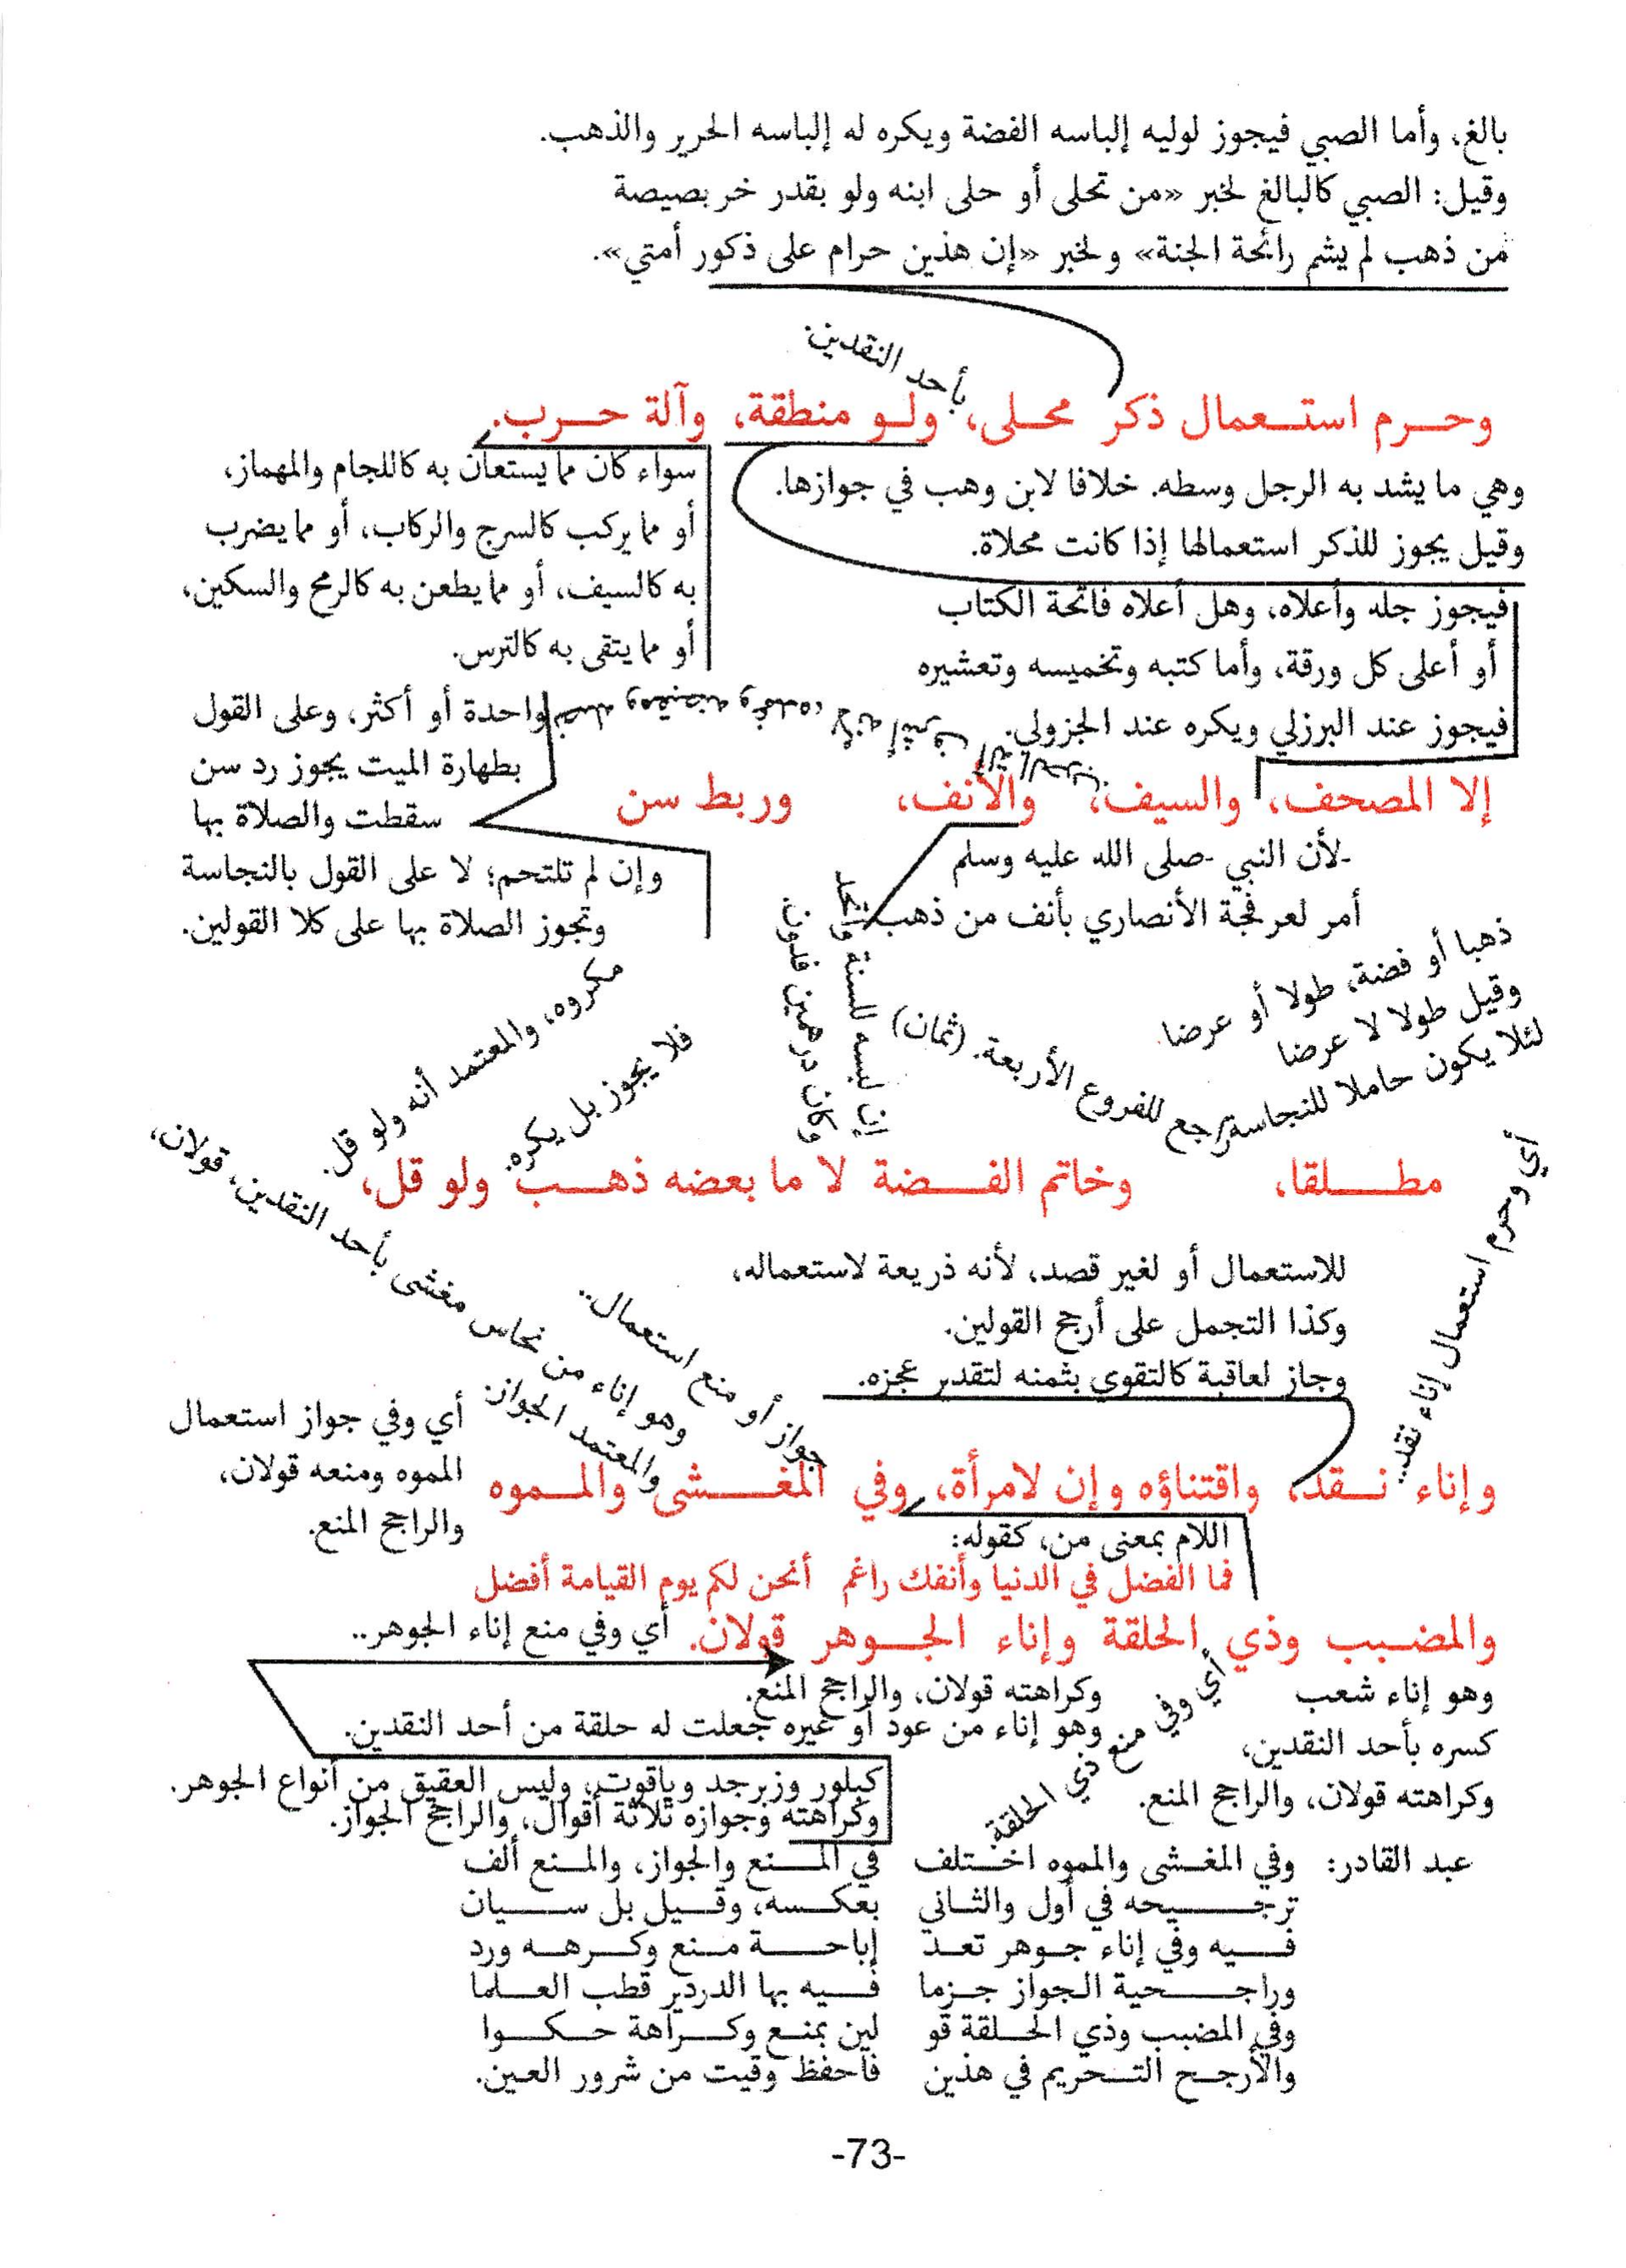 بالغ، وأما الصبي فيجوز لوليه إلباسه الفضة ويكره له إلباسه الحرير والذهب.
وقيل: الصبي كالبالغ لخبر «من تحلى أو حلى ابنه ولو بقدر خربصيصة
من ذهب لم يشم رائحة الجنة» ولخبر «إن هذين حرام على ذكور أمتي».
بأحد النقدين.
وحرم استعمال ذكر محلى، ولو منطقة، وآلة حرب.
وهي ما يشد به الرجل وسطه. خلافا لابن وهب في جوازها.
وقيل يجوز للذكر استعمالها إذا كانت محلاة.
سواء كان مما يستعان به كاللجام والمهماز،
أو مما يركب كالسرج والركاب، أو مما يضرب
به كالسيف، أو مما يطعن به كالرمح والسكين،
أو مما يتقى به كالترس.
فيجوز جله وأعلاه، وهل أعلاه فاتحة الكتاب
أو أعلى كل ورقة، وأما كتبه وتخميسه وتعشيره
فيجوز عند البرزلي ويكره عند الجزولي.
إلا المصحف، والسيف، والأنف، وربط سن
واحدة أو أكثر، وعلى القول
بطهارة الميت يجوز رد سن
سقطت والصلاة بها
وإن لم تلتحم؛ لا على القول بالنجاسة
وتجوز الصلاة بها على كلا القولين.
-لأن النبي -صلى الله عليه وسلم
أمر لعرفجة الأنصاري بأنف من ذهب
ذهبا أو فضة، طولا أو عرضا.
وقيل طولا لا عرضا
لئلا يكون حاملا للنجاسة
يرجع للفروع الأربعة. (ثمان)
إن لبسه للسنة واتحد
وكان درهمين فدون.
فلا يجوز بل يكره.
مكروه، والمعتمد أنه ولو قل.
مطلقا، وخاتم الفضة لا ما بعضه ذهب ولو قل،
أي وحرم استعمال إناء نقد..
للاستعمال أو لغير قصد، لأنه ذريعة لاستعماله،
وكذا التجمل على أرجح القولين.
وجاز لعاقبة كالتقوي بثمنه لتقدير عجزه.
جواز أو منع استعمال..
وهو إناء من نحاس مغشى بأحد النقدين، قولان،
والمعتمد الجواز.
وإناء نقد، واقتناؤه وإن لامرأة، وفي المغشى والمموه
أي وفي جواز استعمال
المموه ومنعه قولان،
والراجح المنع.
اللام بمعنى من، كقوله:
فما الفضل في الدنيا وأنفك راغم أنحن لكم يوم القيامة أفضل
والمضبب وذي الحلقة وإناء الجوهر قولان. أي وفي منع إناء الجوهر..
وهو إناء شعب
كسره بأحد النقدين،
وكراهته قولان، والراجح المنع.
أي وفي منع ذي الحلقة.
وكراهته قولان، والراجح المنع.
وهو إناء من عود أو غيره جعلت له حلقة من أحد النقدين.
كبلور وزبرجد وياقوت، وليس العقيق من أنواع الجوهر.
وكراهته وجوازه ثلاثة أقوال، والراجح الجواز.
عبد القادر: وفي المغشى والمموه اختلف في المنع والجواز، والمنع ألف
ترجيحه في أول والثاني بعكسه، وقيل بل سيان
فيه وفي إناء جوهر تعد إباحة منع وكرهه ورد
وراجحية الجواز جزما فيه بها الدردير قطب العلما
وفي المضبب وذي الحلقة قو لين بمنع وكراهة حكوا
والأرجح التحريم في هذين فاحفظ وقيت من شرور العين.
-73-